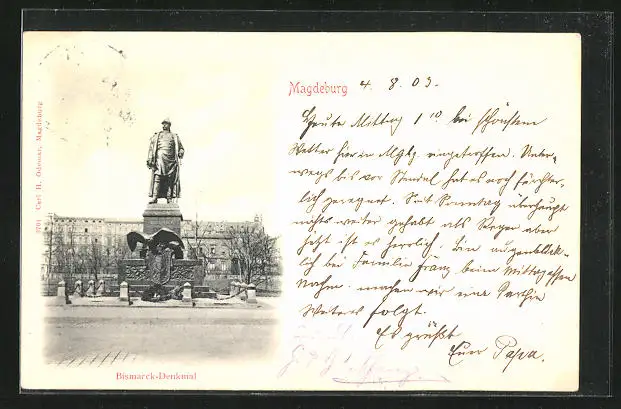 Magdeburg 4. 8. 03.
Heute Mittag 1 10 bei schönstem
Wetter hier in Mgbg. eingetroffen. Unter-
wegs bis vor Stendal hat es noch fürchter-
lich geregnet. Seit Sonntag überhaupt
nichts weiter gehabt als Regen aber
jetzt ist es herrlich. Bin augenblick-
lich bei Familie Franz beim Mittagessen
Nachm. machen wir eine Partie
Weiteres folgt.
Es grüßt
Euer Papa.
3701 Carl H. Odemar, Magdeburg
Bismarck-Denkmal